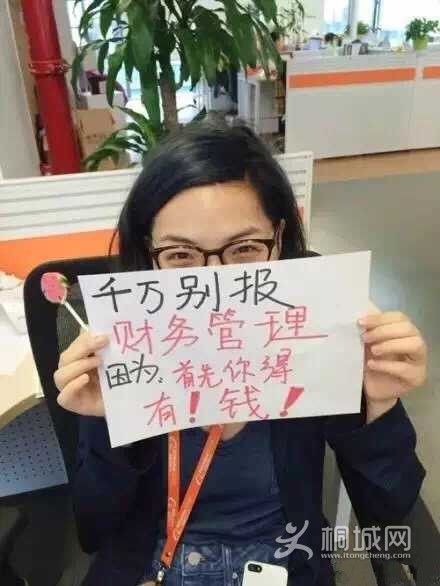 千万别报
财务管理
因为,首先你得
有!钱!
桐城网
www.itongcheng.com